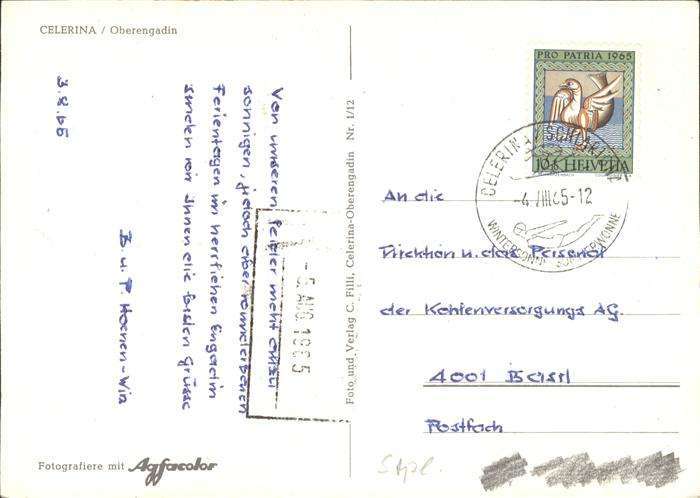 CELERINA / Oberengadin
3.8.65
Von unseren leider nicht allzu
sonnigen, jedoch aber wunderbaren
Ferientagen im herrlichen Engadin
senden wir Ihnen die besten Grüsse
B. u. P. Hoenen-Wirz
- 5. AUG 1965
Fotografiere mit Agfacolor
Foto und Verlag C. Filli, Celerina-Oberengadin Nr. 1/12
PRO PATRIA 1965
10+ HELVETIA
CELERINA SCHLARIGNA
-4.VIII.65-12
WINTERSONNE SOMMERWONNE
An die
Direktion u. das Personal
der Kohlenversorgungs AG.
4001 Basel
Postfach
Stpl.